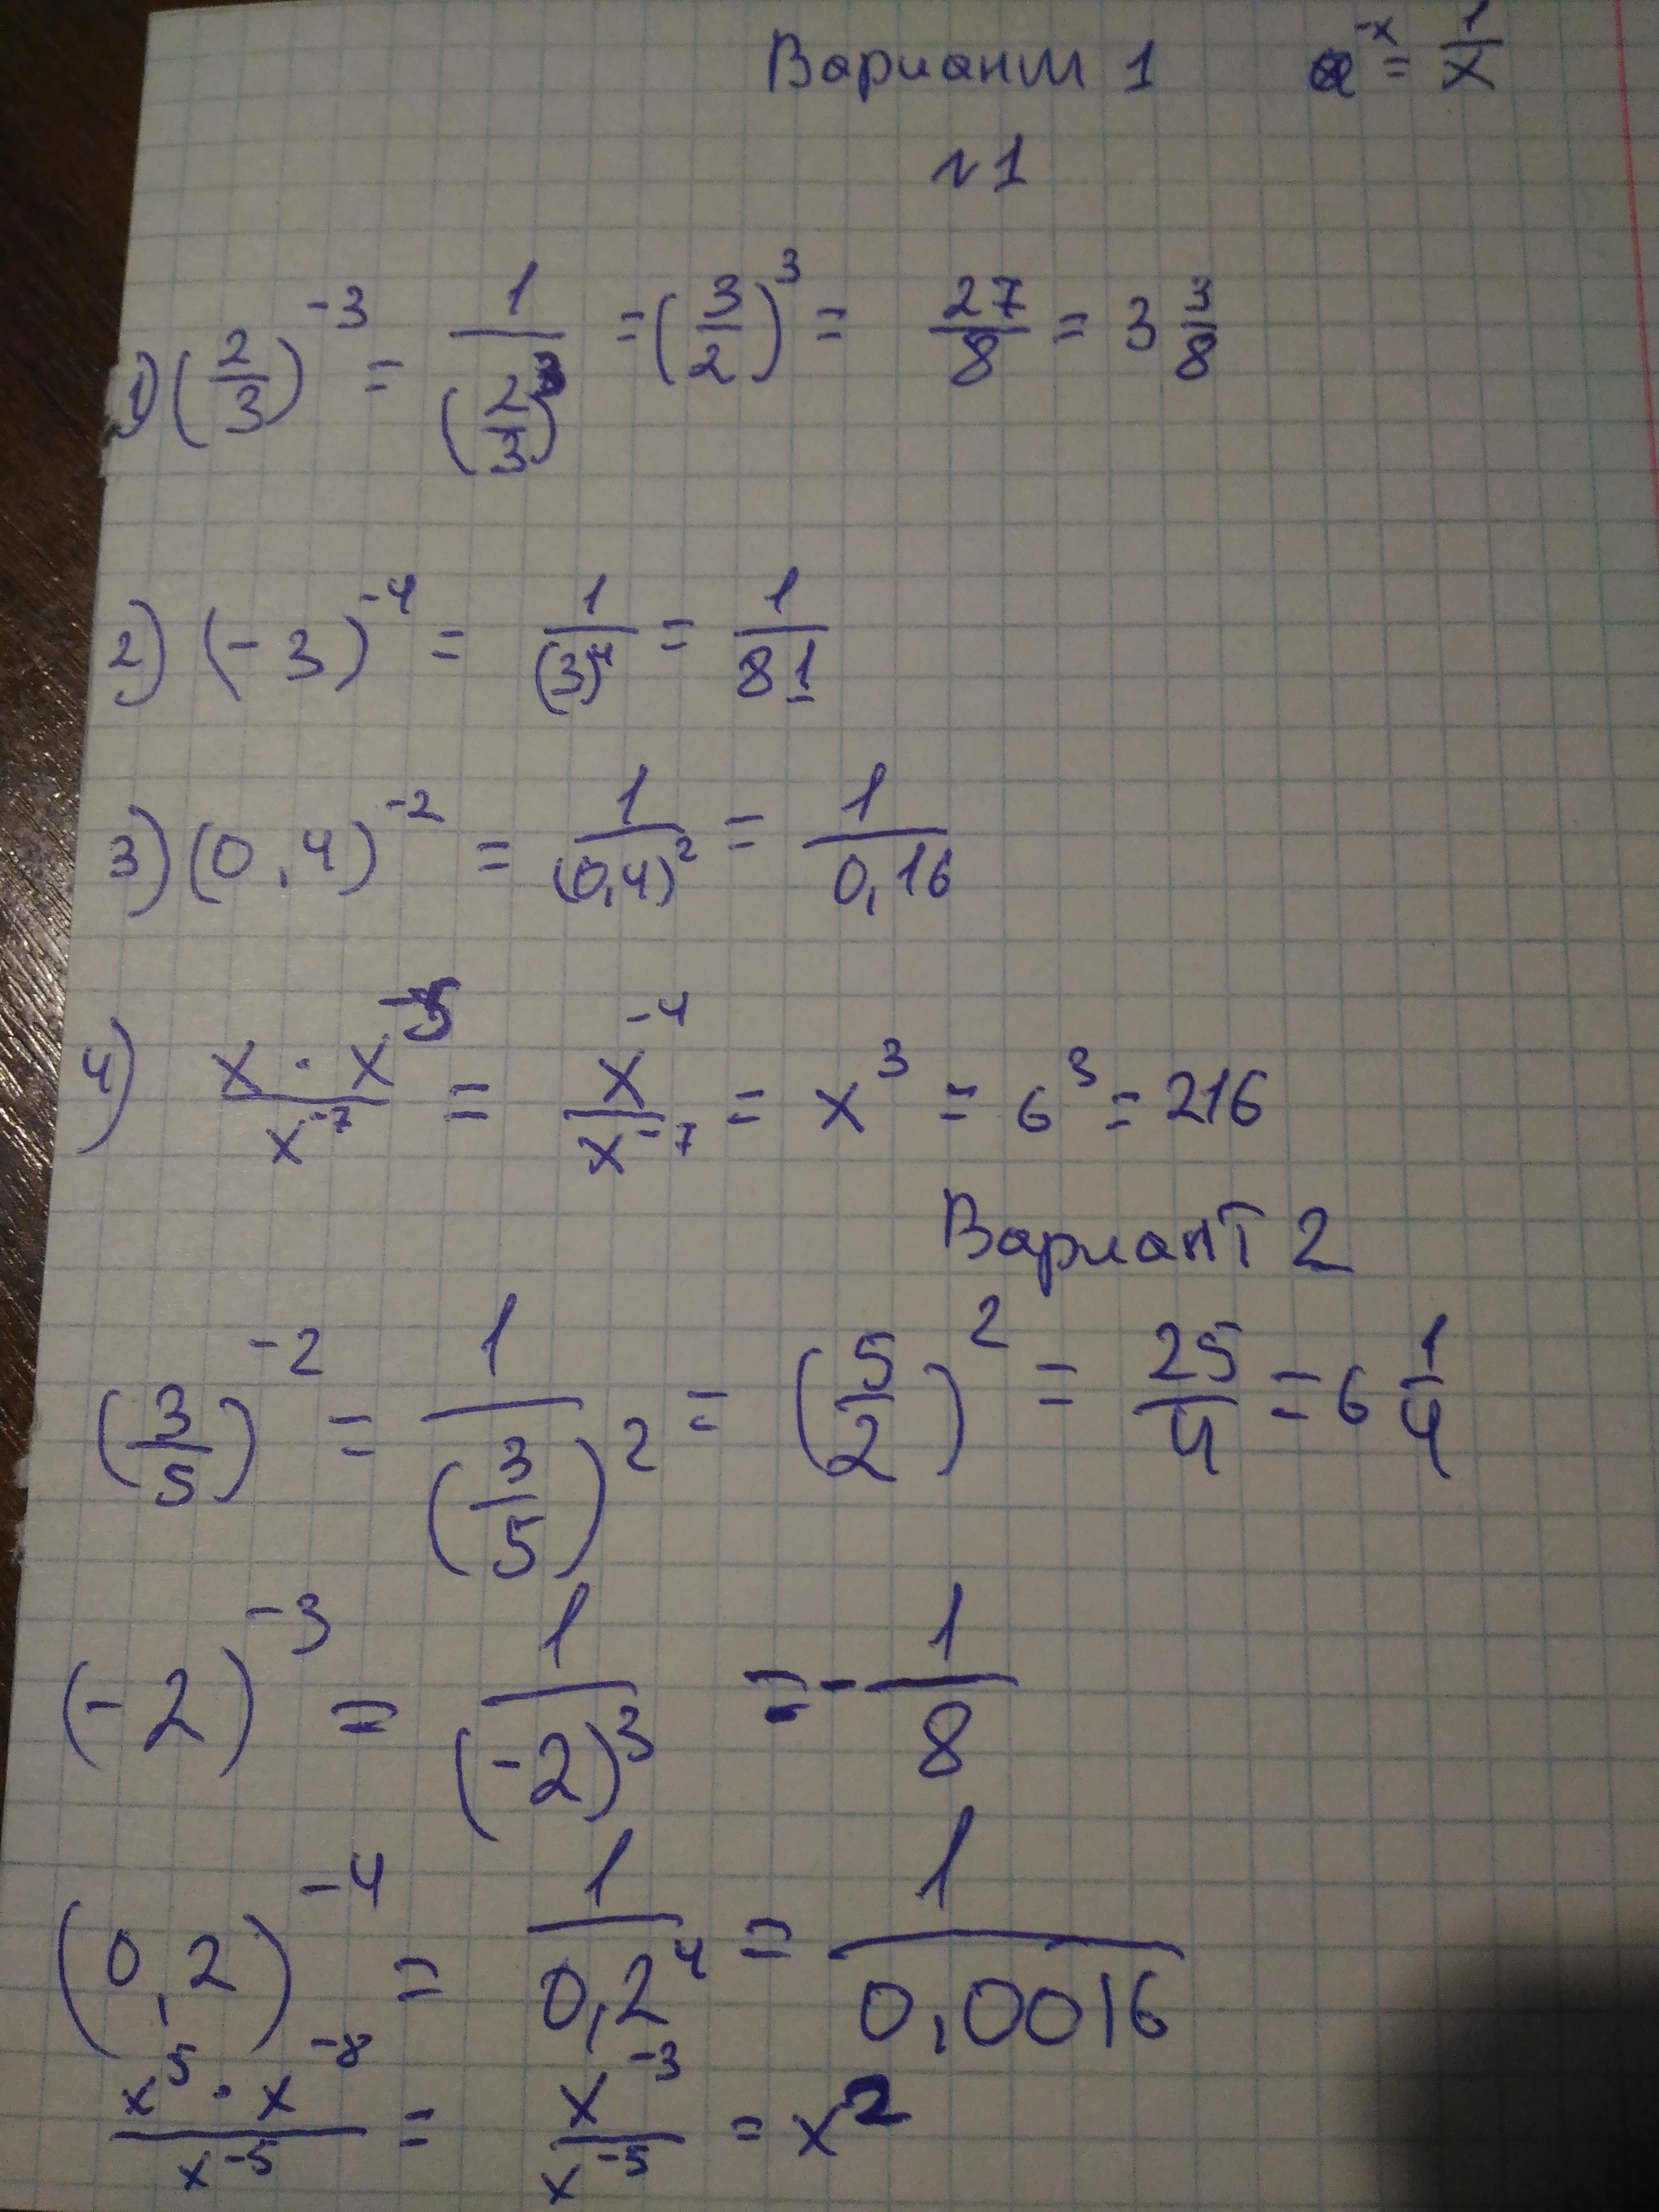 Вариант 1 a^{-x} = \frac{1}{x}
№1
1) (\frac{2}{3})^{-3} = \frac{1}{(\frac{2}{3})^3} = (\frac{3}{2})^3 = \frac{27}{8} = 3 \frac{3}{8}
2) (-3)^{-4} = \frac{1}{(3)^4} = \frac{1}{81}
3) (0,4)^{-2} = \frac{1}{(0,4)^2} = \frac{1}{0,16}
4) \frac{x · x^{-5}}{x^{-7}} = \frac{x^{-4}}{x^{-7}} = x^3 = 6^3 = 216
Вариант 2
(\frac{3}{5})^{-2} = \frac{1}{(\frac{3}{5})^2} = (\frac{5}{2})^2 = \frac{25}{4} = 6 \frac{1}{4}
(-2)^{-3} = \frac{1}{(-2)^3} = -\frac{1}{8}
(0,2)^{-4} = \frac{1}{0,2^4} = \frac{1}{0,0016}
\frac{x^5 · x^{-8}}{x^{-5}} = \frac{x^{-3}}{x^{-5}} = x^2